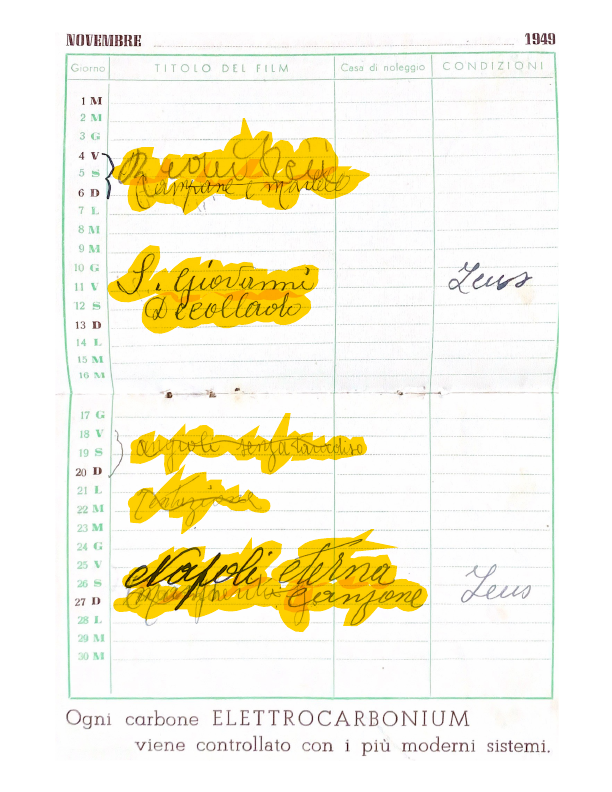 NOVEMBRE 1949
Giorno TITOLO DEL FILM Casa di noleggio CONDIZIONI
1 M
2 M
3 G
4 V
5 S
6 D
Campane a martello
7 L
8 M
9 M
10 G
11 V S. Giovanni Zeus
12 S Decollato
13 D
14 L
15 M
16 M
17 G
18 V
19 S Angeli senza paradiso
20 D
21 L
22 M
23 M
24 G
25 V Napoli eterna
26 S Zeus
27 D Canzone
28 L
29 M
30 M
Ogni carbone ELETTROCARBONIUM
viene controllato con i più moderni sistemi.